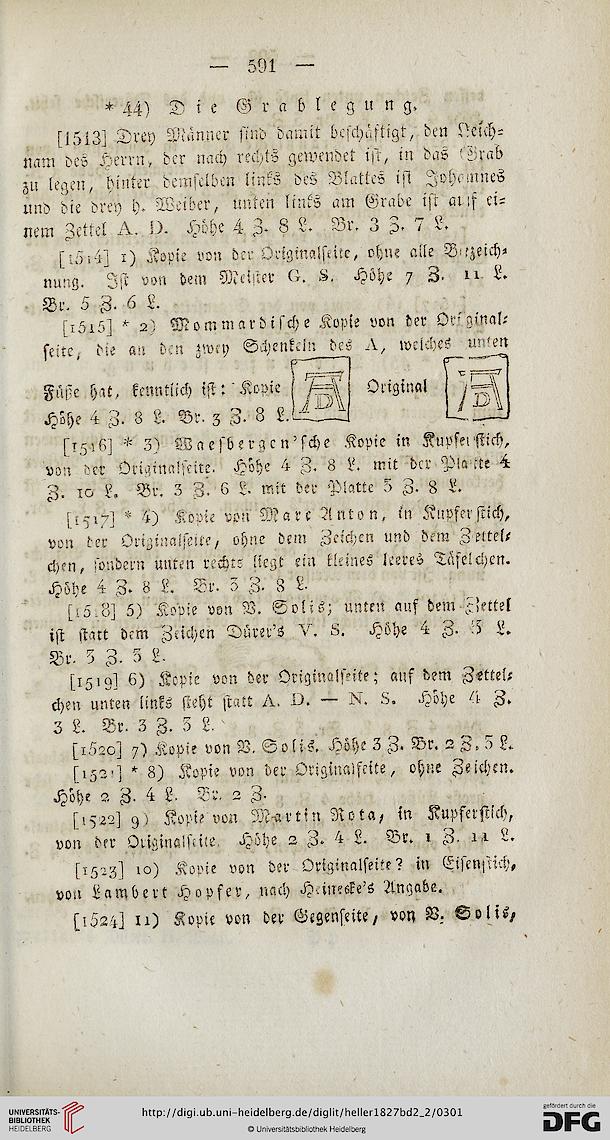 — 591 —
* 44) Die Grablegung.
[1513] Drey Männer sind damit beschäftigt, den Leich-
nam des Herrn, der nach rechts gewendet ist, in das Grab
zu legen, hinter demselben links des Blattes ist Johannes
und die drey h. Weiber, unten links am Grabe ist auf ei-
nem Zettel A. D. Höhe 4 Z. 8 L. Br. 3 Z. 7 L.
[1514] 1) Kopie von der Originalseite, ohne alle Bezeich-
nung. Ist von dem Meister G. S. Höhe 7 Z. 11 L.
Br. 5 Z. 6 L.
[1515] * 2) Mommardische Kopie von der Original-
seite, die an den zwey Schenkeln des A, welches unten
Füße hat, kenntlich ist: Kopie AD Original AD
Höhe 4 Z. 8 L. Br. 3 Z. 8 L.
[1516] * 3) Waesbergen'sche Kopie in Kupferstich,
von der Originalseite. Höhe 4 Z. 8 L. mit der Platte 4
Z. 10 L. Br. 3 Z. 6 L. mit der Platte 3 Z. 8 L.
[1517] * 4) Kopie von Marc Anton, in Kupferstich,
von der Originalseite, ohne dem Zeichen und dem Zettel-
chen, sondern unten rechts liegt ein kleines leeres Täfelchen.
Höhe 4 Z. 8 L. Br. 3 Z. 8 L.
[1518] 5) Kopie von V. Solis; unten auf dem Zettel
ist statt dem Zeichen Dürer's V. S. Höhe 4 Z. 3 L.
Br. 3 Z. 3 L.
[1519] 6) Kopie von der Originalseite; auf dem Zettel-
chen unten links steht statt A. D. — N. S. Höhe 4 Z.
3 L. Br. 3 Z. 3 L.
[1520] 7) Kopie von V. Solis. Höhe 3 Z. Br. 2 Z. 3 L.
[1521] * 8) Kopie von der Originalseite, ohne Zeichen.
Höhe 2 Z. 4 L. Br. 2 Z.
[1522] 9) Kopie von Martin Rota, in Kupferstich,
von der Originalseite. Höhe 2 Z. 4 L. Br. 1 Z. 11 L.
[1523] 10) Kopie von der Originalseite? in Eisenstich,
von Lambert Hopfer, nach Heineske's Angabe.
[1524] 11) Kopie von der Gegenseite, von V. Solis,
UNIVERSITÄTS-
BIBLIOTHEK
HEIDELBERG
http://digi.ub.uni-heidelberg.de/diglit/heller1827bd2_2/0301
© Universitätsbibliothek Heidelberg
gefördert durch die
DFG